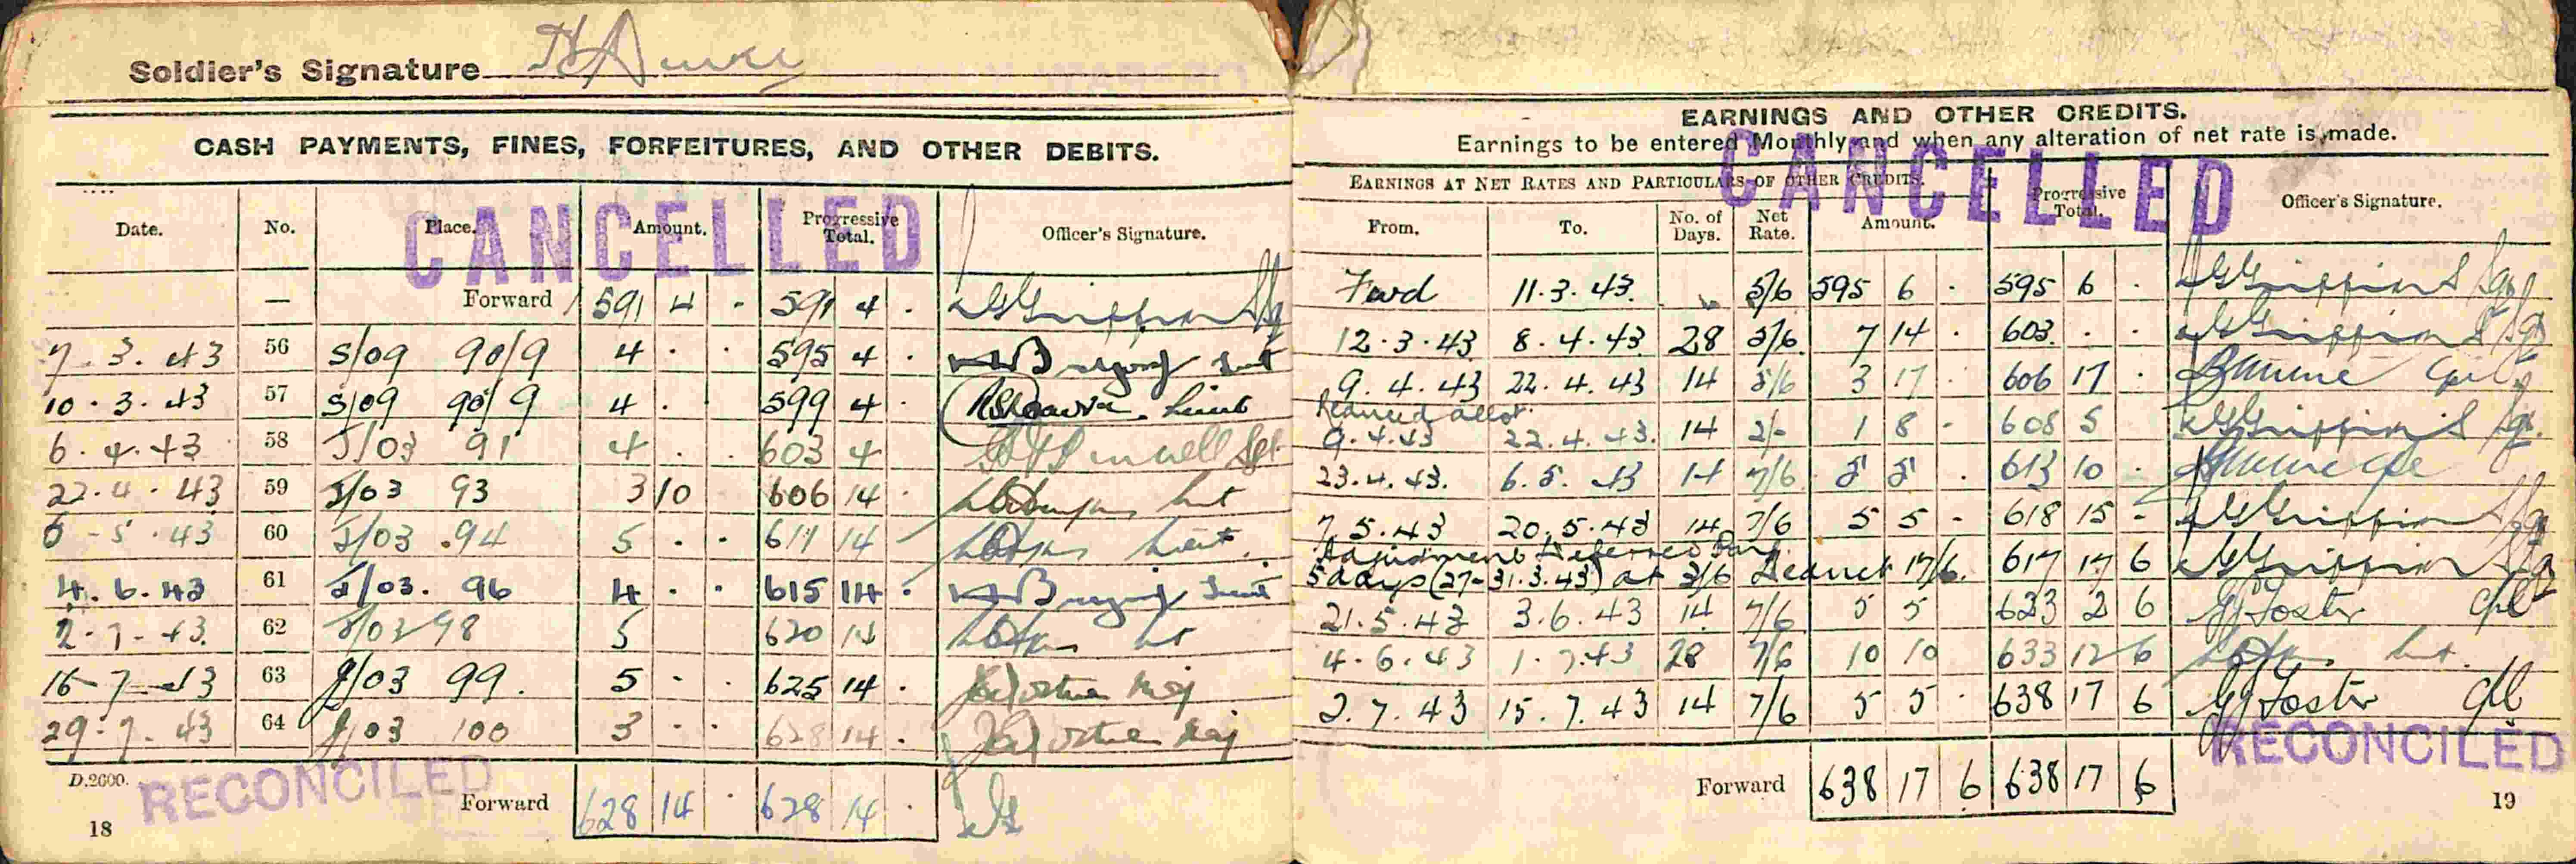 Soldier's Signature
CASH PAYMENTS, FINES, FORFEITURES, AND OTHER DEBITS.
CANCELLED
Date. No. Place. Amount. Progressive Total. Officer's Signature.
— Forward 591 4 · 591 4 ·
7.3.43 56 S/09 90/9 4 · · 595 4 ·
10.3.43 57 S/09 90/9 4 · 599 4 · Lieut
6.4.43 58 J/03 91 4 · · 603 4 Sgt
22.4.43 59 J/03 93 3 10 606 14 · Lut
6-5.43 60 J/03 .94 5 · · 611 14 Lieut.
4.6.43 61 J/03. 96 4 · · 615 14 · Lieut
2-7-43. 62 J/03 98 5 620 14
16-7-43 63 J/03 99. 5 - · 625 14 · Maj
29-7.43 64 J/03 100 3 - · 628 14 · Maj
D.2600.
RECONCILED
Forward 628 14 · 628 14 ·
18
EARNINGS AND OTHER CREDITS.
Earnings to be entered Monthly and when any alteration of net rate is made.
CANCELLED
EARNINGS AT NET RATES AND PARTICULARS OF OTHER CREDITS.
From. To. No. of Days. Net Rate. Amount. Progressive Total. Officer's Signature.
Fwd 11.3.43. 5/6 595 6 · 595 6 ·
12.3.43 8.4.43 28 5/6 7 14 · 603 · ·
9.4.43 22.4.43 14 5/6 3 17 · 606 17 ·
Reduced allot.
9.4.43 22.4.43. 14 2/- 1 8 - 608 5
23.4.43. 6.5.43 14 7/6 5 5 · 613 10 ·
7.5.43 20.5.43 14 7/6 5 5 - 618 15 -
Adjustment Deferred Pay
5 days (27-31.3.43) at 3/6 Deduct 17/6. 617 17 6
21.5.43 3.6.43 14 7/6 5 5 623 2 6 GJ Foster Cpl
4.6.43 1.7.43 28 7/6 10 10 633 12 6
2.7.43 15.7.43 14 7/6 5 5 · 638 17 6 GJ Foster Cpl
RECONCILED
Forward 638 17 6 638 17 6
19